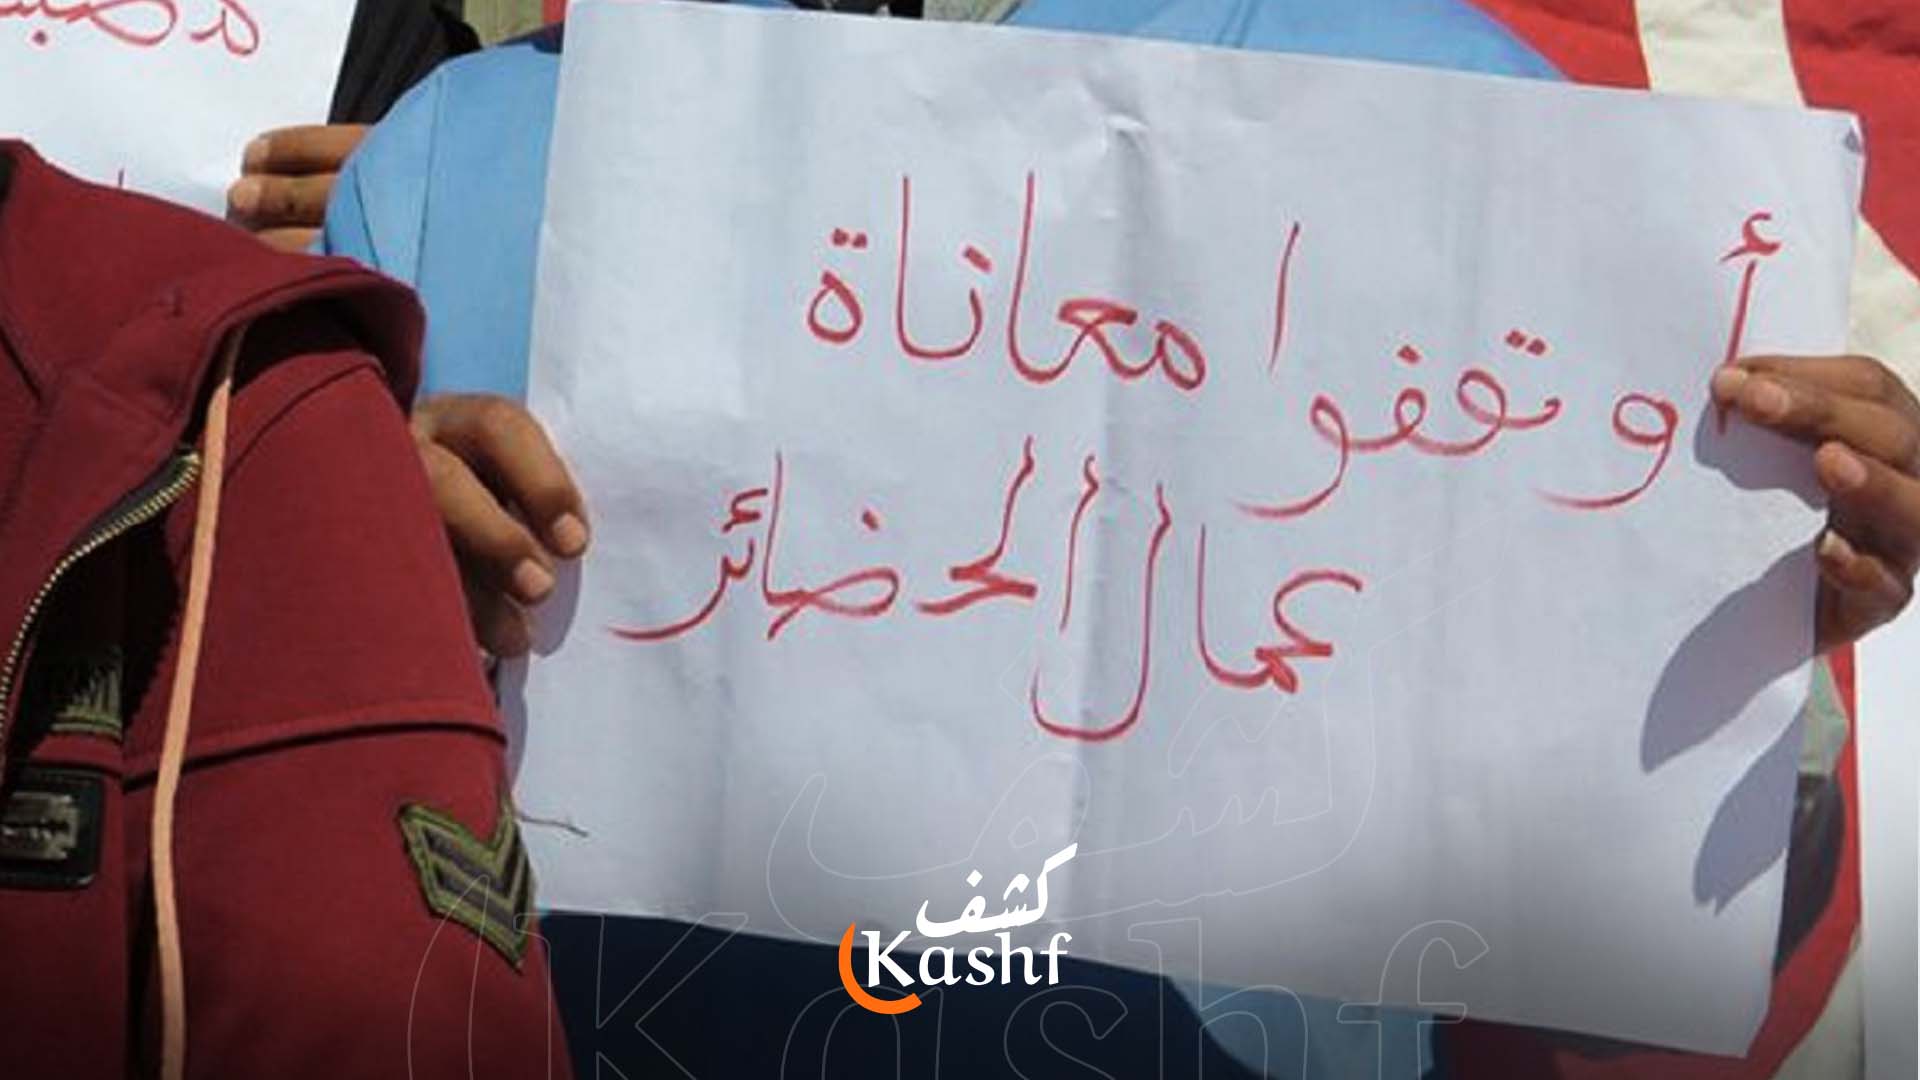 أوقفوا معاناة
عمال الحضائر
كشف
Kashf